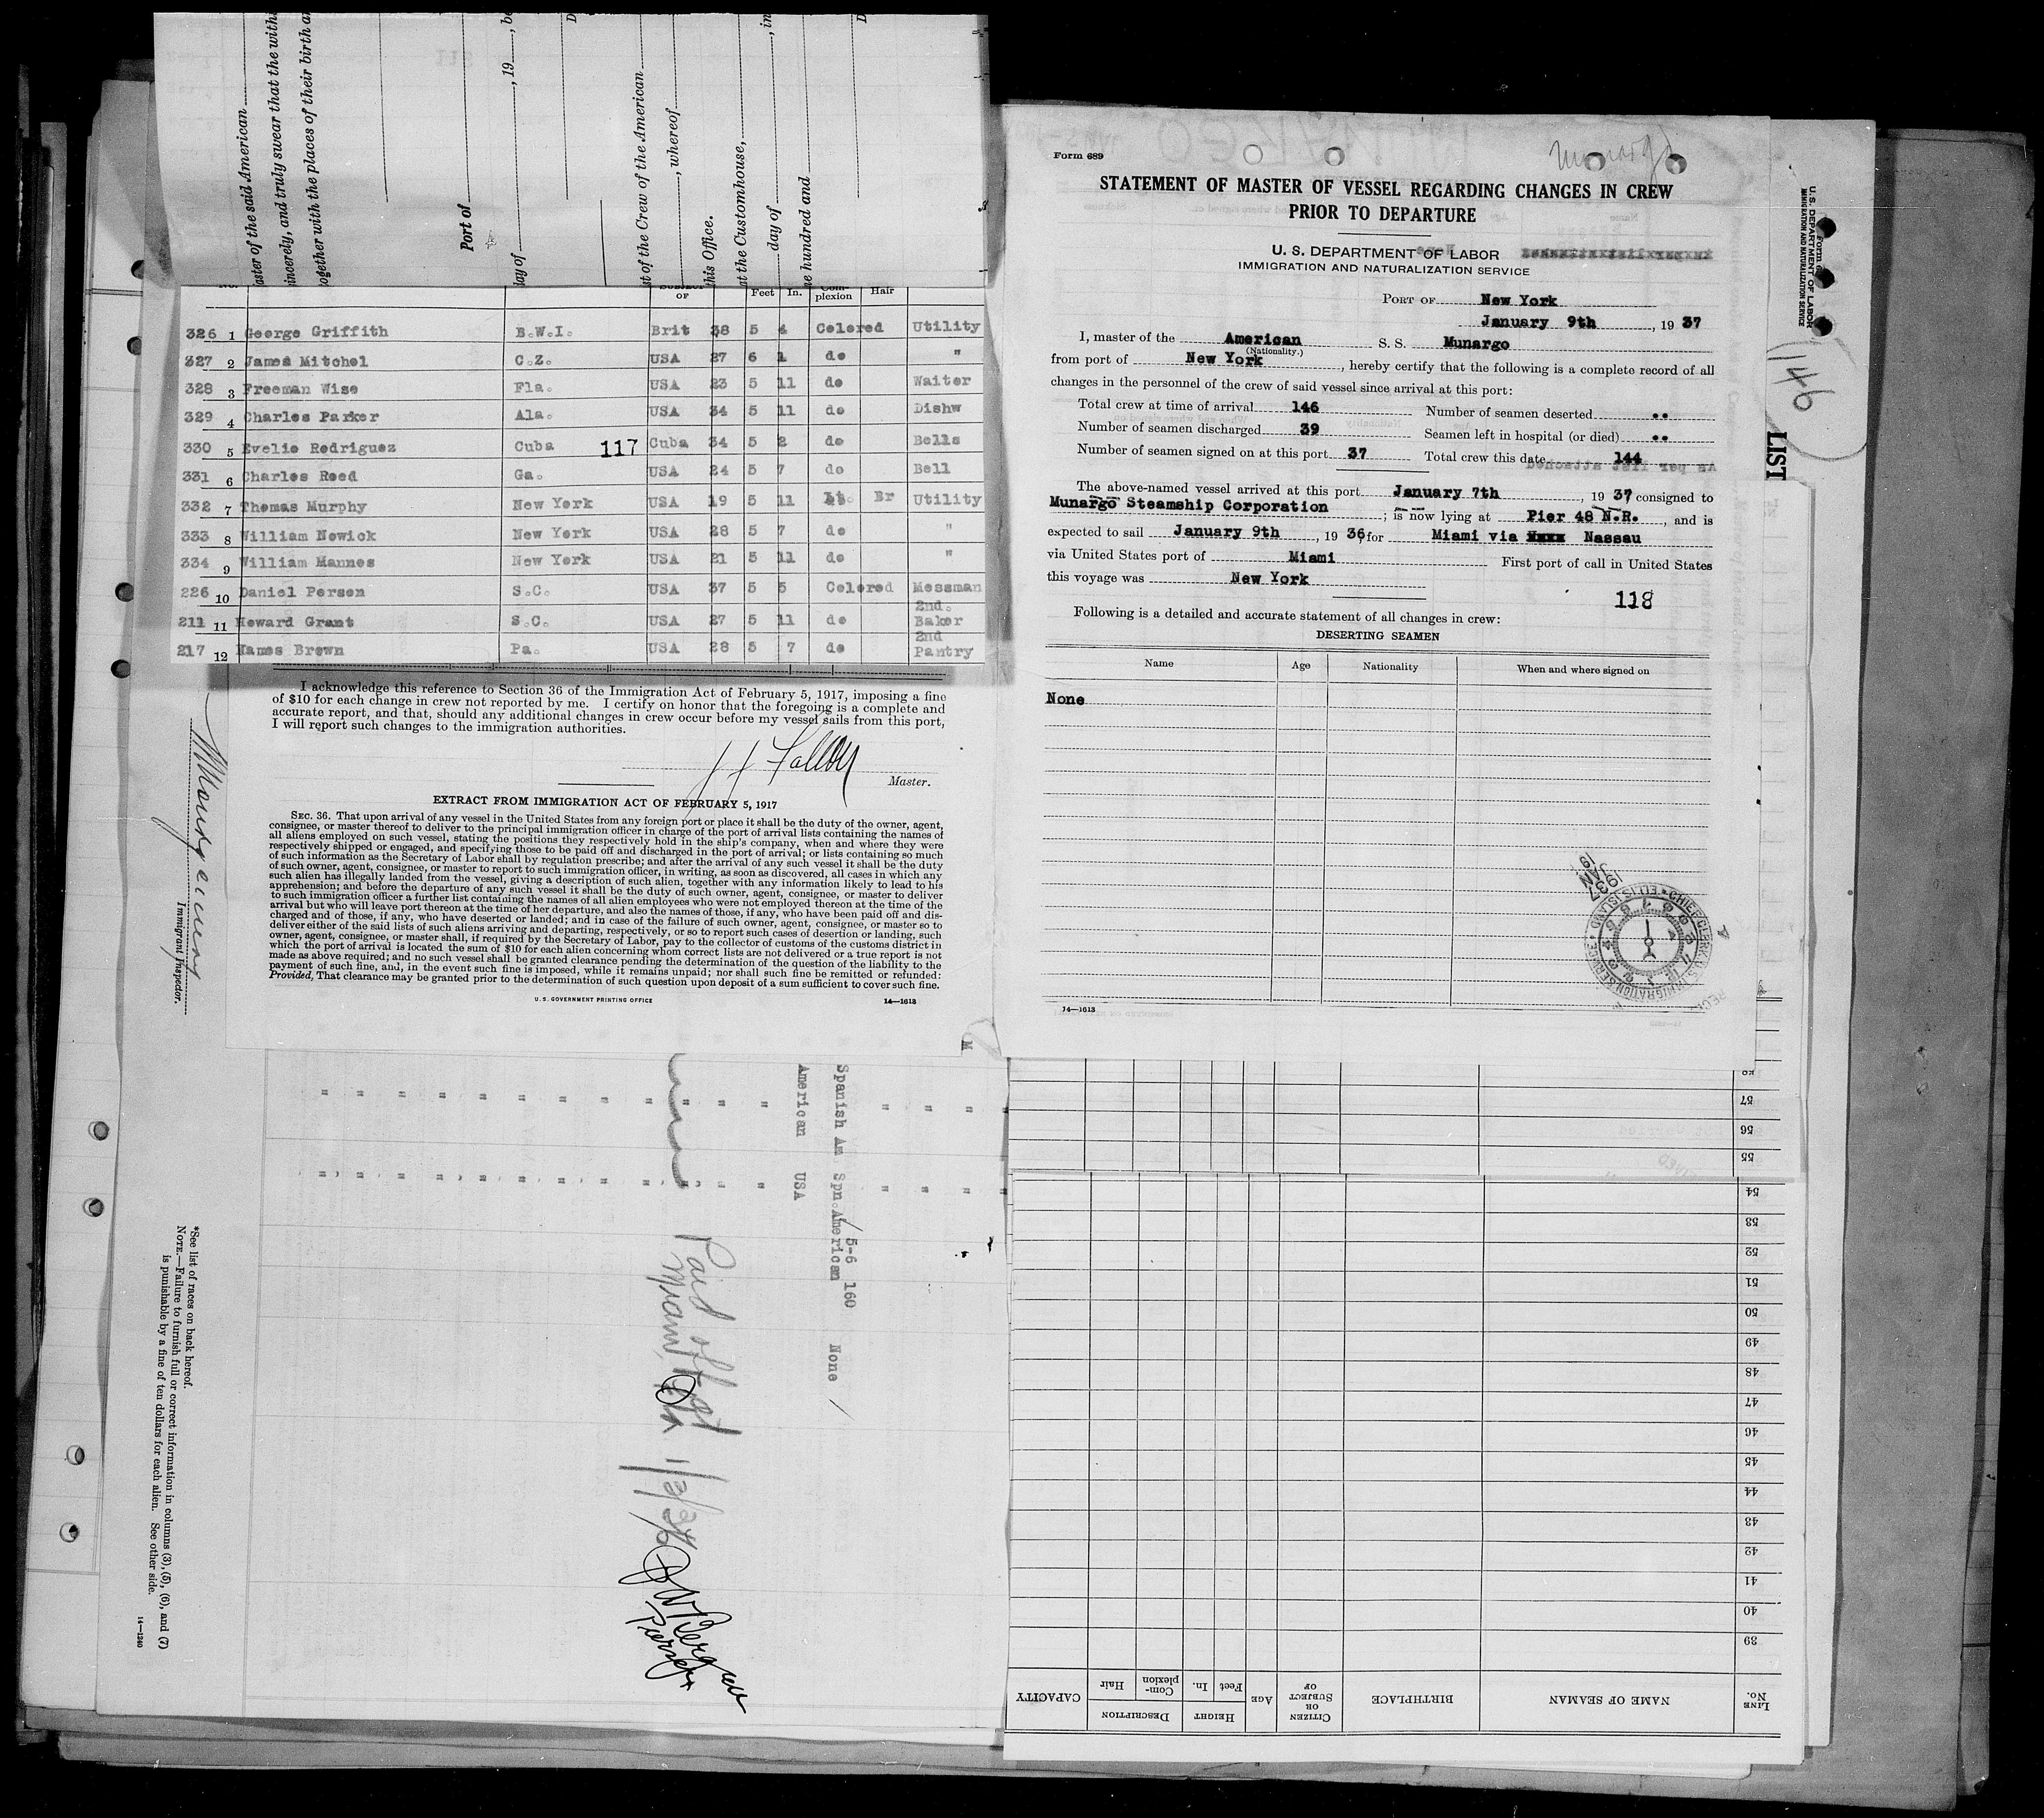 aster of the said American
incerely, and truly swear that the with
ogether with the places of their birth a
Port of
day of , 19 , be
t of the Crew of the American
, whereof
this Office.
at the Customhouse,
day of , in
ne hundred and
OF Feet In. plexion Hair
326 1 George Griffith B.W.I. Brit 38 5 4 Colored Utility
327 2 James Mitchel C.Z. USA 27 6 1 do "
328 3 Freeman Wise Fla. USA 23 5 11 do Waiter
329 4 Charles Parker Ala. USA 34 5 11 do Dishw
330 5 Evelio Rodriguez Cuba 117 Cuba 34 5 2 do Bells
331 6 Charles Reed Ga. USA 24 5 7 do Bell
332 7 Thomas Murphy New York USA 19 5 11 Lt. Br Utility
333 8 William Newick New York USA 28 5 7 do "
334 9 William Mannes New York USA 21 5 11 do "
226 10 Daniel Person S.C. USA 37 5 5 Colored Messman
211 11 Howard Grant S.C. USA 27 5 11 do 2nd. Baker
217 12 Hames Brown Pa. USA 28 5 7 do 2nd Pantry
I acknowledge this reference to Section 36 of the Immigration Act of February 5, 1917, imposing a fine
of $10 for each change in crew not reported by me. I certify on honor that the foregoing is a complete and
accurate report, and that, should any additional changes in crew occur before my vessel sails from this port,
I will report such changes to the immigration authorities.
Master.
EXTRACT FROM IMMIGRATION ACT OF FEBRUARY 5, 1917
SEC. 36. That upon arrival of any vessel in the United States from any foreign port or place it shall be the duty of the owner, agent,
consignee, or master thereof to deliver to the principal immigration officer in charge of the port of arrival lists containing the names of
all aliens employed on such vessel, stating the positions they respectively hold in the ship's company, when and where they were
respectively shipped or engaged, and specifying those to be paid off and discharged in the port of arrival; or lists containing so much
of such information as the Secretary of Labor shall by regulation prescribe; and after the arrival of any such vessel it shall be the duty
of such owner, agent, consignee, or master to report to such immigration officer, in writing, as soon as discovered, all cases in which any
such alien has illegally landed from the vessel, giving a description of such alien, together with any information likely to lead to his
apprehension; and before the departure of any such vessel it shall be the duty of such owner, agent, consignee, or master to deliver
to such immigration officer a further list containing the names of all alien employees who were not employed thereon at the time of the
arrival but who will leave port thereon at the time of her departure, and also the names of those, if any, who have been paid off and dis-
charged and of those, if any, who have deserted or landed; and in case of the failure of such owner, agent, consignee, or master so to
deliver either of the said lists of such aliens arriving and departing, respectively, or so to report such cases of desertion or landing, such
owner, agent, consignee, or master shall, if required by the Secretary of Labor, pay to the collector of customs of the customs district in
which the port of arrival is located the sum of $10 for each alien concerning whom correct lists are not delivered or a true report is not
made as above required; and no such vessel shall be granted clearance pending the determination of the question of the liability to the
payment of such fine, and, in the event such fine is imposed, while it remains unpaid; nor shall such fine be remitted or refunded:
Provided, That clearance may be granted prior to the determination of such question upon deposit of a sum sufficient to cover such fine.
U. S. GOVERNMENT PRINTING OFFICE 14—1613
Immigrant Inspector.
*See list of races on back hereof.
NOTE.—Failure to furnish full or correct information in columns (3), (5), (6), and (7)
is punishable by a fine of ten dollars for each alien. See other side.
14—1240
Spanish Am Spn.American 5-6 160 None
American USA
Paid off at
Miami, Fla 1/2/36
Form 689
Munargo
STATEMENT OF MASTER OF VESSEL REGARDING CHANGES IN CREW
PRIOR TO DEPARTURE
U. S. DEPARTMENT OF LABOR
IMMIGRATION AND NATURALIZATION SERVICE
PORT OF New York
January 9th , 19 37
I, master of the American S. S. Munargo
(Nationality.)
from port of New York , hereby certify that the following is a complete record of all
changes in the personnel of the crew of said vessel since arrival at this port:
Total crew at time of arrival 146 Number of seamen deserted ..
Number of seamen discharged 39 Seamen left in hospital (or died) ..
Number of seamen signed on at this port 37 Total crew this date 144
The above-named vessel arrived at this port January 7th , 19 37 consigned to
Munargo Steamship Corporation ; is now lying at Pier 48 N.R. , and is
expected to sail January 9th , 19 36 for Miami via xxxx Nassau
via United States port of Miami First port of call in United States
this voyage was New York
118
Following is a detailed and accurate statement of all changes in crew:
DESERTING SEAMEN
Name Age Nationality When and where signed on
None
1937 JAN 19
CHIEF CLERK U.S. IMMIGRATION SERVICE ELLIS ISLAND
14—1613
U.S. DEPARTMENT OF LABOR
IMMIGRATION AND NATURALIZATION SERVICE
1146
LIST
57
56
55
54
53
52
51
50
49
48
47
46
45
44
43
42
41
40
39
LINE No. NAME OF SEAMAN BIRTHPLACE CITIZEN OR SUBJECT OF AGE HEIGHT Feet In. DESCRIPTION Complexion Hair CAPACITY